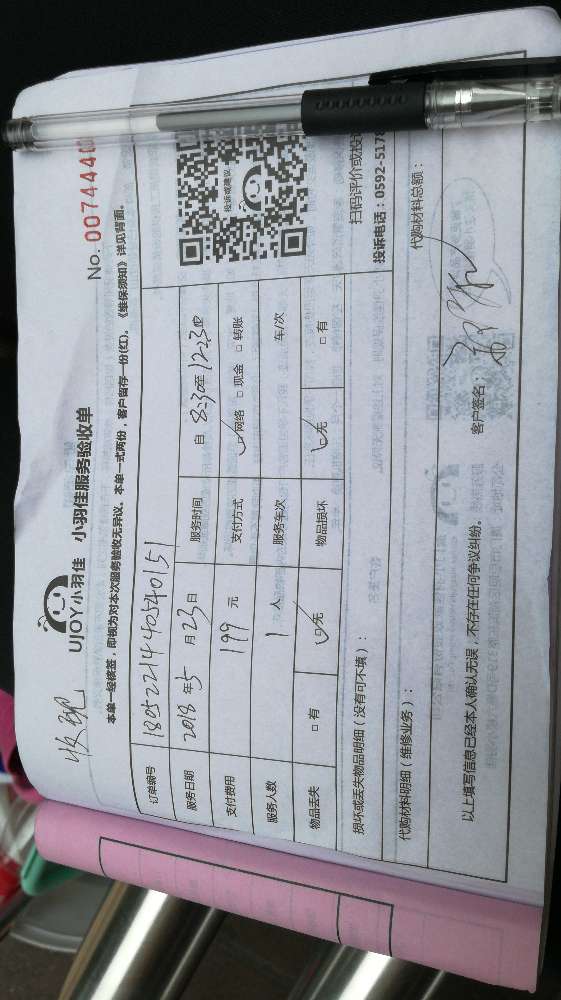 No. 0074440
UJOY小羽佳 小羽佳服务验收单
本单一经核签，即视为对本次服务验收无异议，本单一式两份，客户留存一份(红)。《维保须知》详见背面。
订单编号 1805221440540151
服务日期 2018 年 5 月 23 日 服务时间 自 8:30 至 12:30
支付费用 199 元 支付方式 网络 □ 现金 □ 转账
服务人数 1 人 服务车次 车/次
物品丢失 □ 有 □ 无 物品损坏 □ 无 □ 有
投诉或建议
扫码评价或投
投诉电话：0592-5178
损坏或丢失物品明细（没有可不填）：
代购材料明细（维修业务）： 代购材料总额：
以上填写信息已经本人确认无误，不存在任何争议纠纷。 客户签名：